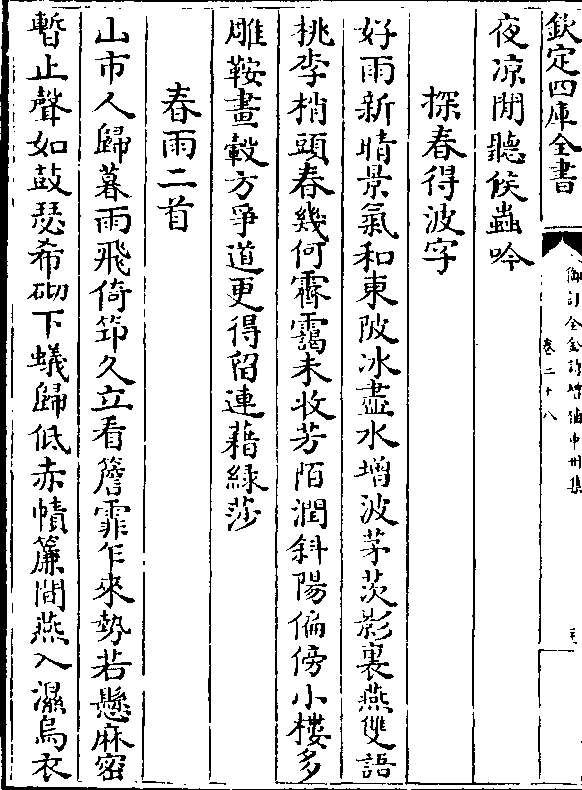 欽定四庫全書
御訂全金詩增補中州集
卷二十八
夜凉閒聽候蟲吟
探春得波字
好雨新晴景氣和東陂冰盡水增波茅茨影裏燕雙語
桃李梢頭春幾何霽靄未收芳陌潤斜陽偏傍小樓多
雕鞍畫轂方爭道更得留連藉緑莎
春雨二首
山市人歸暮雨飛倚筇久立看簷霏乍來勢若懸麻密
暫止聲如鼓瑟希砌下蟻歸低赤幘簾間燕入濕烏衣